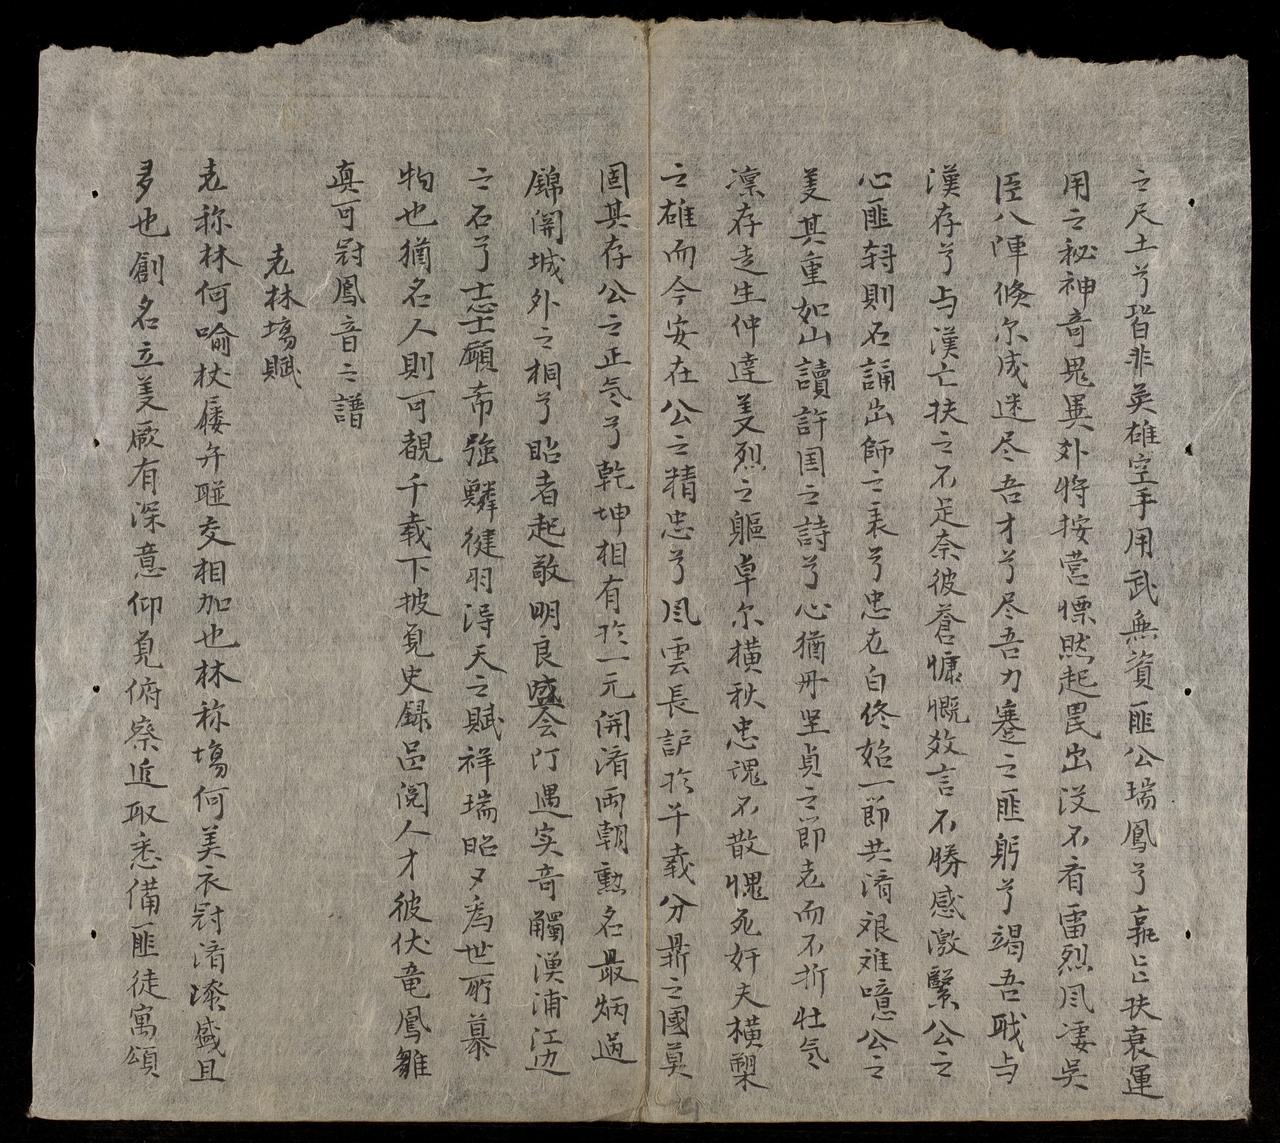 之尺土兮皆非英雄空手用武無資匪公瑞鳳兮孰与扶衰運
用之秘神奇鬼異外将按营慓然起畏出没不看雷烈风凄吴
臣八陣倏尔成迷尽吾才兮尽吾力蹇之匪躬兮竭吾戢与
漢存兮与漢亡扶之不足奈彼蒼慷慨效言不勝感激繄公之
心匪轉則石誦出師之表兮忠在白佟始一節共濟艰难噫公之
美其重如山讀許国之詩兮心猶丹坚貞之節老而不折壮气
凛存走生仲達美烈之軀卓尔横秋忠魂不散愧死奸夫横槊
之雄而今安在公之精忠兮风雲長護扵千载分鼎之國莫
固其存公之正气兮乾坤相有扵一元開濟两朝勲名最炳過
錦関城外之桐兮昭者起敬明良盛会汀遇实奇觸漠浦江边
之石兮志士顧希強鱗健羽浔天之賦祥瑞昭〻為世所慕
物也猶名人則可覩千载下披覓史録吕阅人才彼伏竜鳳雛
真可冠鳳音之譜
老林塲賦
老称林何喻杖屦弁聯交相加也林称塲何美衣冠濟濟盛且
多也創名立美厥有深意仰覓俯察近取悉備匪徒寓頌